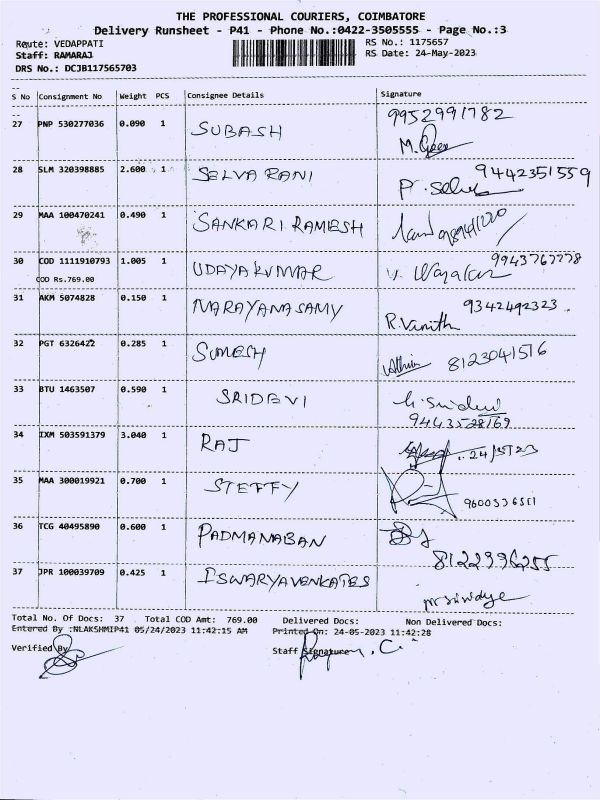 THE PROFESSIONAL COURIERS, COIMBATORE
Delivery Runsheet - P41 - Phone No.:0422-3505555 - Page No.:3
Route: VEDAPPATI RS No.: 1175657
Staff: RAMARAJ RS Date: 24-May-2023
DRS No.: DCJB117565703
S No Consignment No Weight PCS Consignee Details Signature
27 PNP 530277036 0.090 1 SUBASH 9952991782
28 SLM 320398885 2.600 1 SELVA RANI 9442351559
29 MAA 100470241 0.490 1 SANKARI RAMESH
30 COD 1111910793 1.005 1 UDAYA KUMAR 9943767278
COD Rs.769.00
31 AKM 5074828 0.150 1 NARAYANASAMY 9342492323
R.Vinith
32 PGT 6326422 0.285 1 SUMESH 8123041516
33 BTU 1463507 0.590 1 SRIDEVI
9443528169
34 IXM 503591379 3.040 1 RAJ 24/5/23
35 MAA 300019921 0.700 1 STEFFY 9600336511
36 TCG 40495890 0.600 1 PADMANABAN
8122996255
37 JPR 100039709 0.425 1 ISWARYAVENKATES
Total No. Of Docs: 37 Total COD Amt: 769.00 Delivered Docs: Non Delivered Docs:
Entered By :NLAKSHMIP41 05/24/2023 11:42:15 AM Printed On: 24-05-2023 11:42:28
Verified By Staff Signature